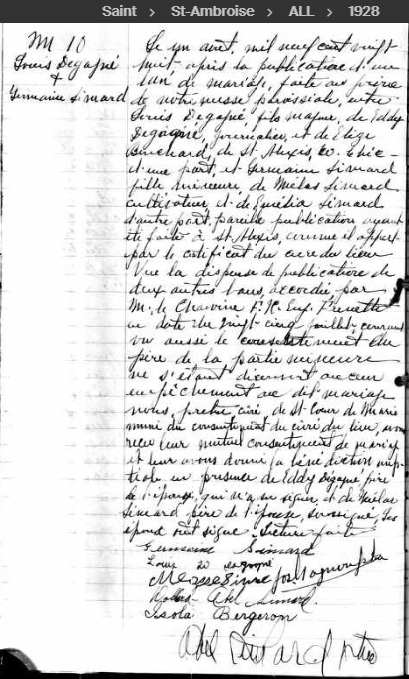 Saint > St-Ambroise > ALL > 1928
M 10
Louis Degagné
+
Germaine Simard
Le un août, mil neuf cent vingt
huit après la publication d'un
ban de mariage, faite au prône
de notre messe paroissiale, entre
Louis Degagné, fils majeur, de Eddy
Degagné, journalier, et de
Bouchard, de St Alexis,
d'une part, et Germaine Simard
fille mineure, de Mélas Simard
cultivateur et de Emélia Simard
d'autre part, pareille publication ayant
été faite à St Alexis, comme il appert
par le certificat du curé du lieu
Vue la dispense de publication de
deux autres bans, accordée par
M. le Chanoine F. X. Eug. Frenette
en date du vingt cinq juillet courant
vu aussi le consentement du
père de la partie mineure
ne s'étant découvert aucun
empêchement au dit mariage
nous, prêtre curé, de St Cœur de Marie
muni du consentement du curé du lieu, avons
reçu leur mutuel consentement de mariage
et leur avons donné la bénédiction nup-
tiale, en présence de Eddy Degagné père
de l'époux, qui n'a su signer, et de Mélas
Simard père de l'épouse, soussigné. Les
époux ont signé. Lecture faite
Germaine Simard
Louis
Simard
Isola Bergeron
Abel Simard Ptre